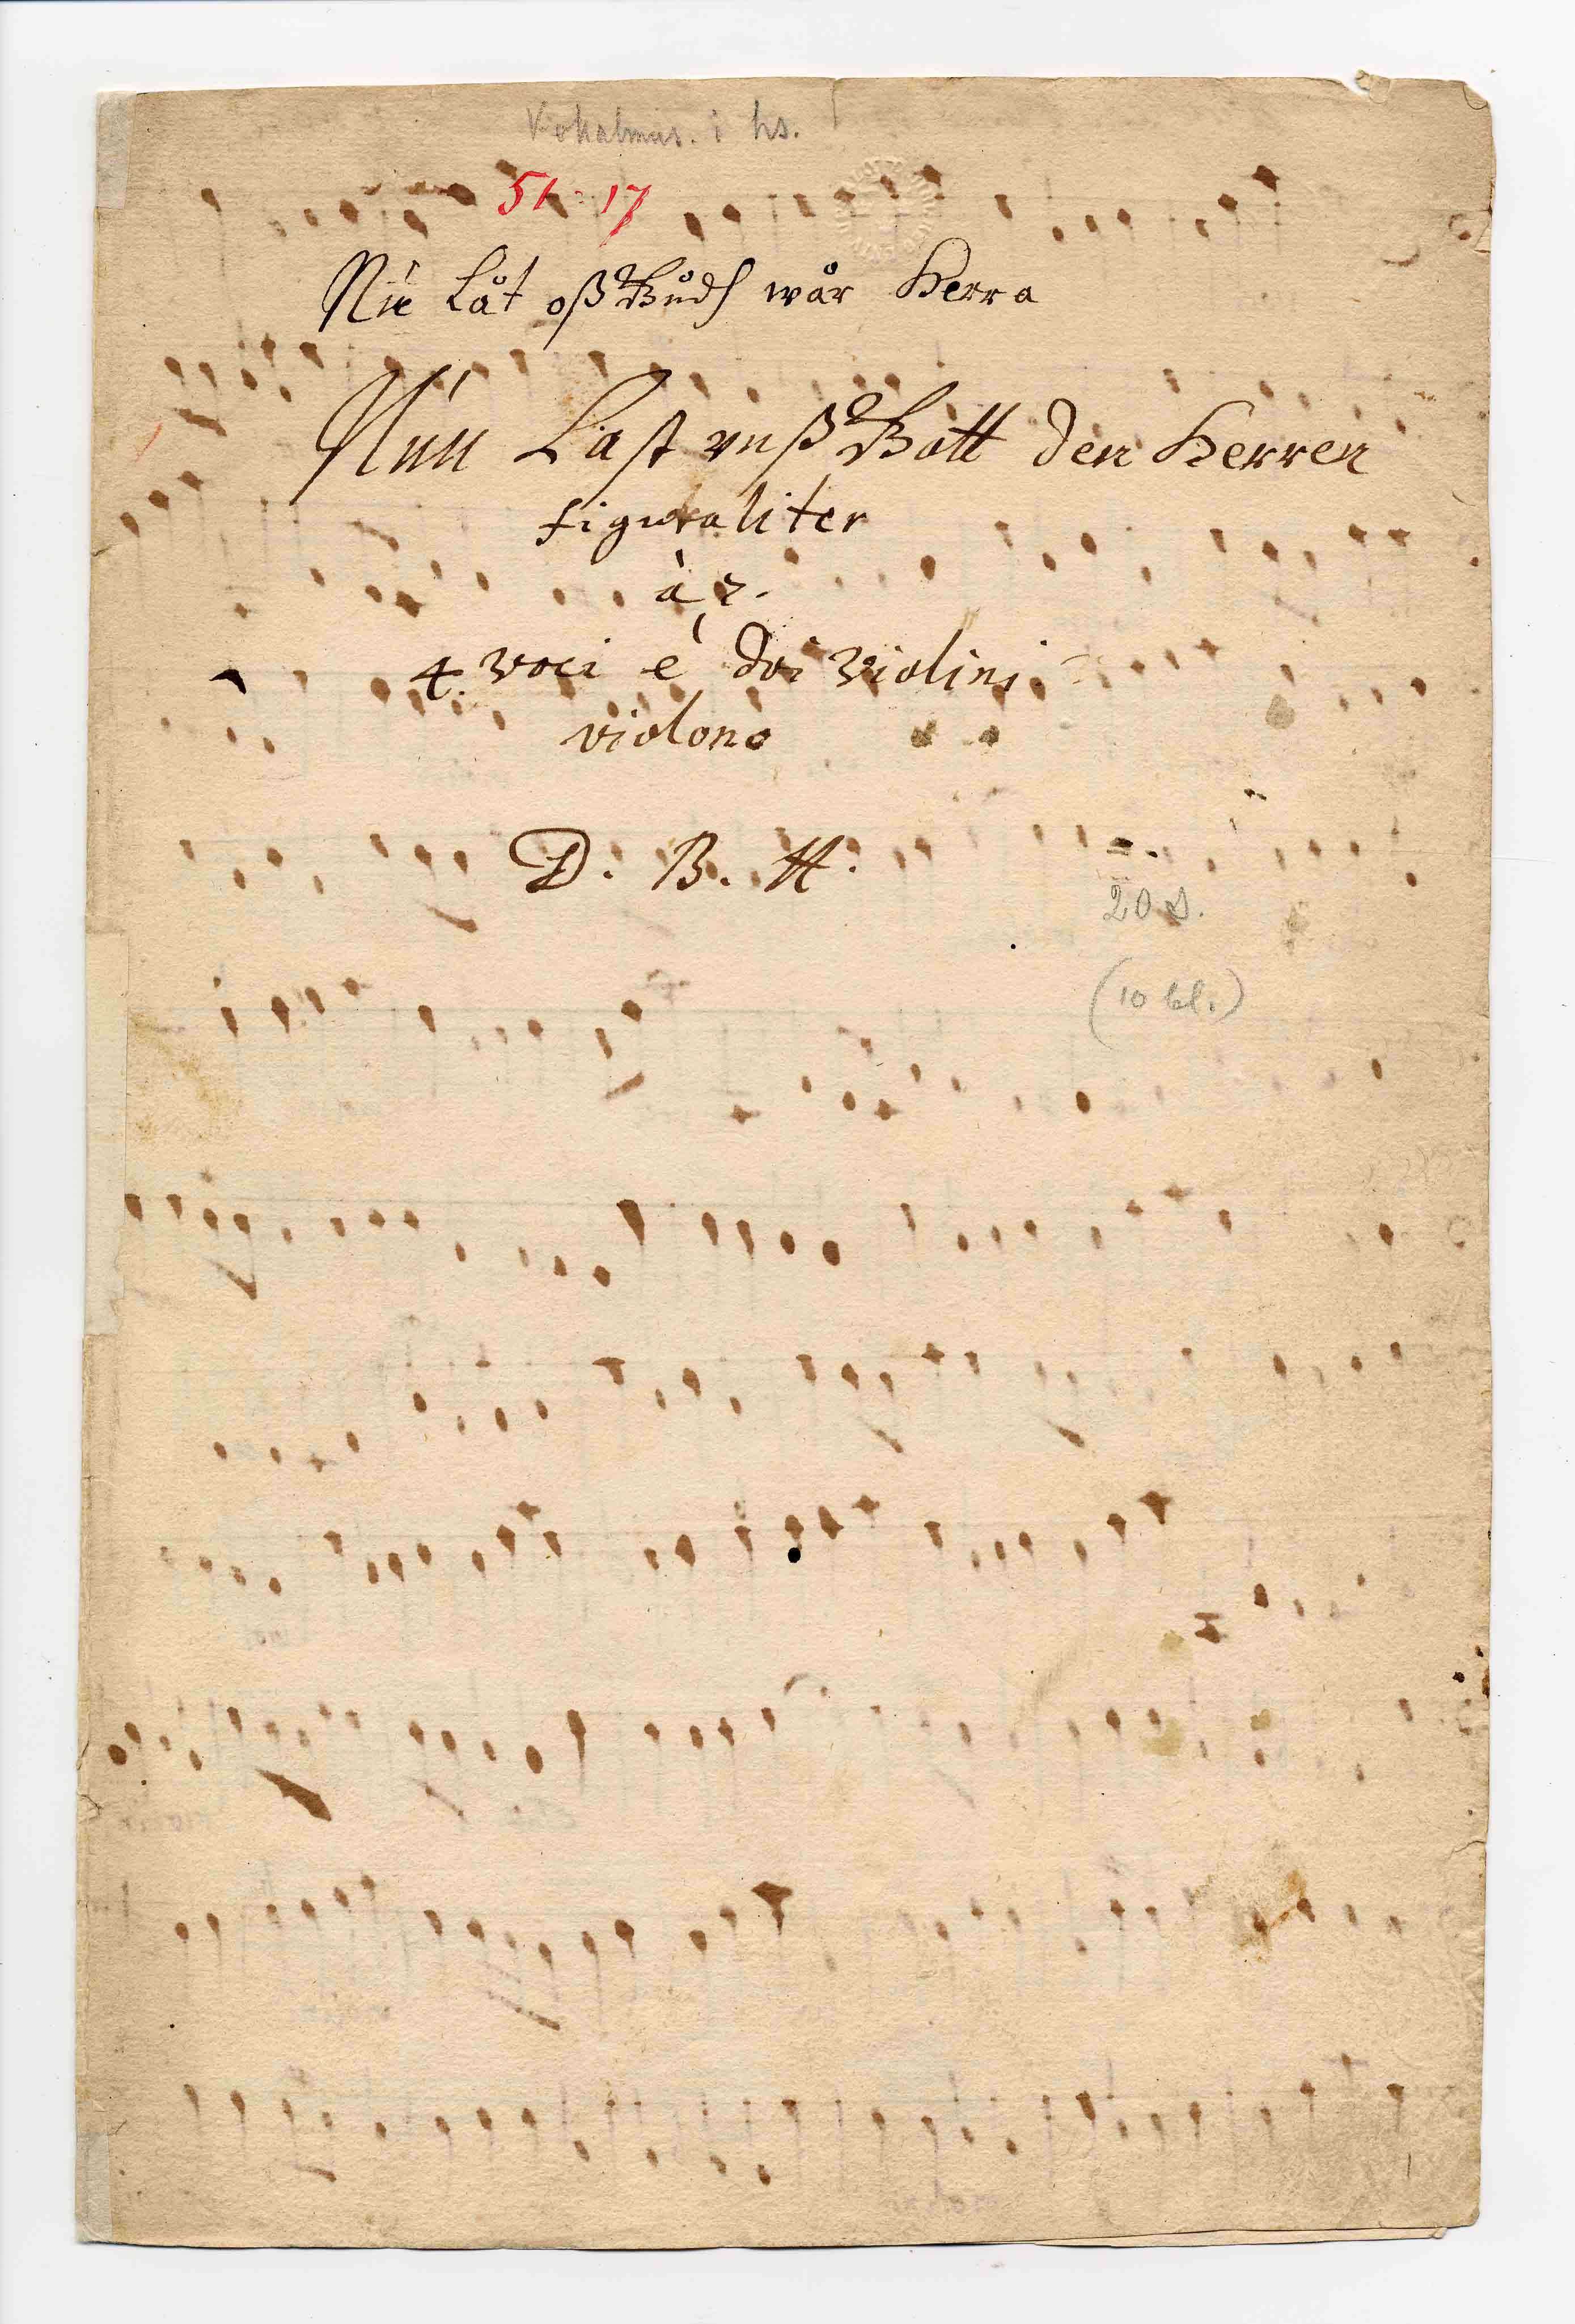 Vokalmus. i hs.
51:17
Nu Låt oß Gudh wår Herra
Nun Last vnß Gott den Herren
figuraliter
à 7.
4. voci è doi violini
violono
D. B. H.
20 s.
(10 bl.)